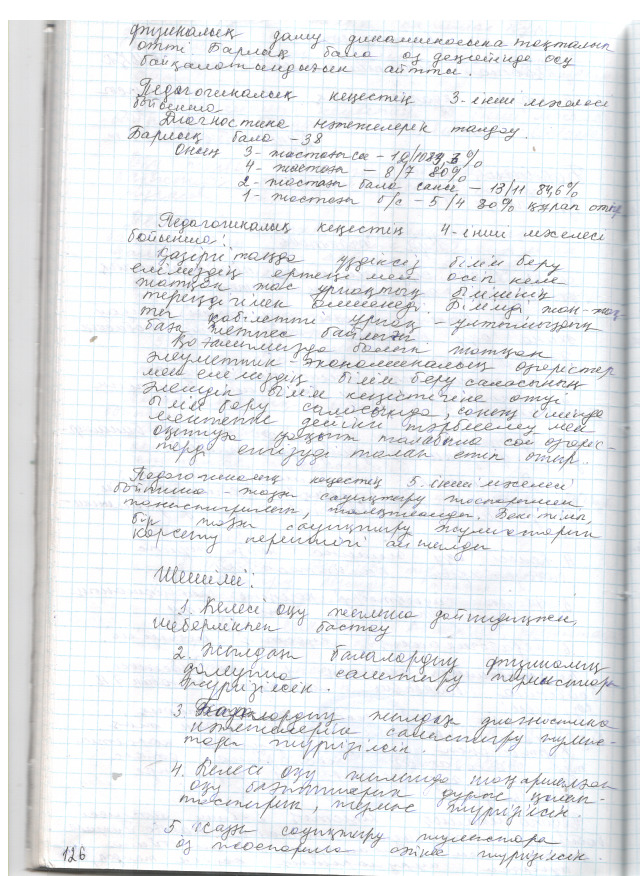 физикалық даму динамикасына тоқталып
өтті Барлық бала өз деңгейінде өсу
байқалатындығын айтты.
Педагогикалық кеңестің 3-інші мәселесі
бойынша
Диагностика нәтижелерін талдау.
Барлық бала - 38
Оның 3-жастағысы - 12/10 83,3%
4-жастағы - 8/7 80%
2-жастағы бала саны - 13/11 84,6%
1-жастағы б/с - 5/4 80% құрап отыр
Педагогикалық кеңестің 4-інші мәселесі
бойынша:
Қазіргі таңда үздіксіз білім беру
еліміздің ертеңі мен өсіп келе
жатқан жас ұрпақтың білімінің
тереңдігімен өлшенеді. Білімді жан-жақ
ты қабілетті ұрпақ - ұлтымыздың
баға жетпес байлығы.
Қоғамымызда болып жатқан
әлеуметтік экономикалық өзгерістер
мен еліміздің білім беру саласының
әлемдік білім кеңістігіне өтуі
білім беру саласында, соның ішінде
мектепке дейінгі тәрбиелеу мен
оқытуға уақыт талабына сай өзгеріс-
терді енгізуді талап етіп отыр.
Педагогикалық кеңестің 5-інші мәселесі
бойынша - жазғы сауықтыру жоспарымен
таныстырылып, талқыланды. Бекітіліп,
бір жазғы сауықтыру жұмыстарын
көрсету керектігі айтылды
Шешімі:
1. Келесі оқу жылына дайындықпен,
шеберлікпен бастау
2. Жылдағы балалардың физикалық
дамуына салыстыру жұмыстары
жүргізілсін.
3. Балалардың жылдағы диагностика
нәтижелеріне салыстыру жұмыс-
тары жүргізілсін.
4. Келесі оқу жылында
оқу дұрыс қалып-
тастырып, жұмыс жүргізілсін.
5. Жазғы сауықтыру жұмыстары
өз жоспарына сәйкес жүргізілсін.
126